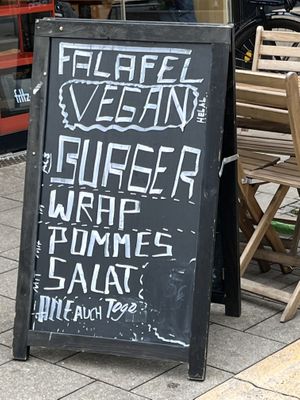 FALAFEL
VEGAN
HELAL
BURGER
WRAP
POMMES
SALAT
ALLE AUCH Togo
fritz